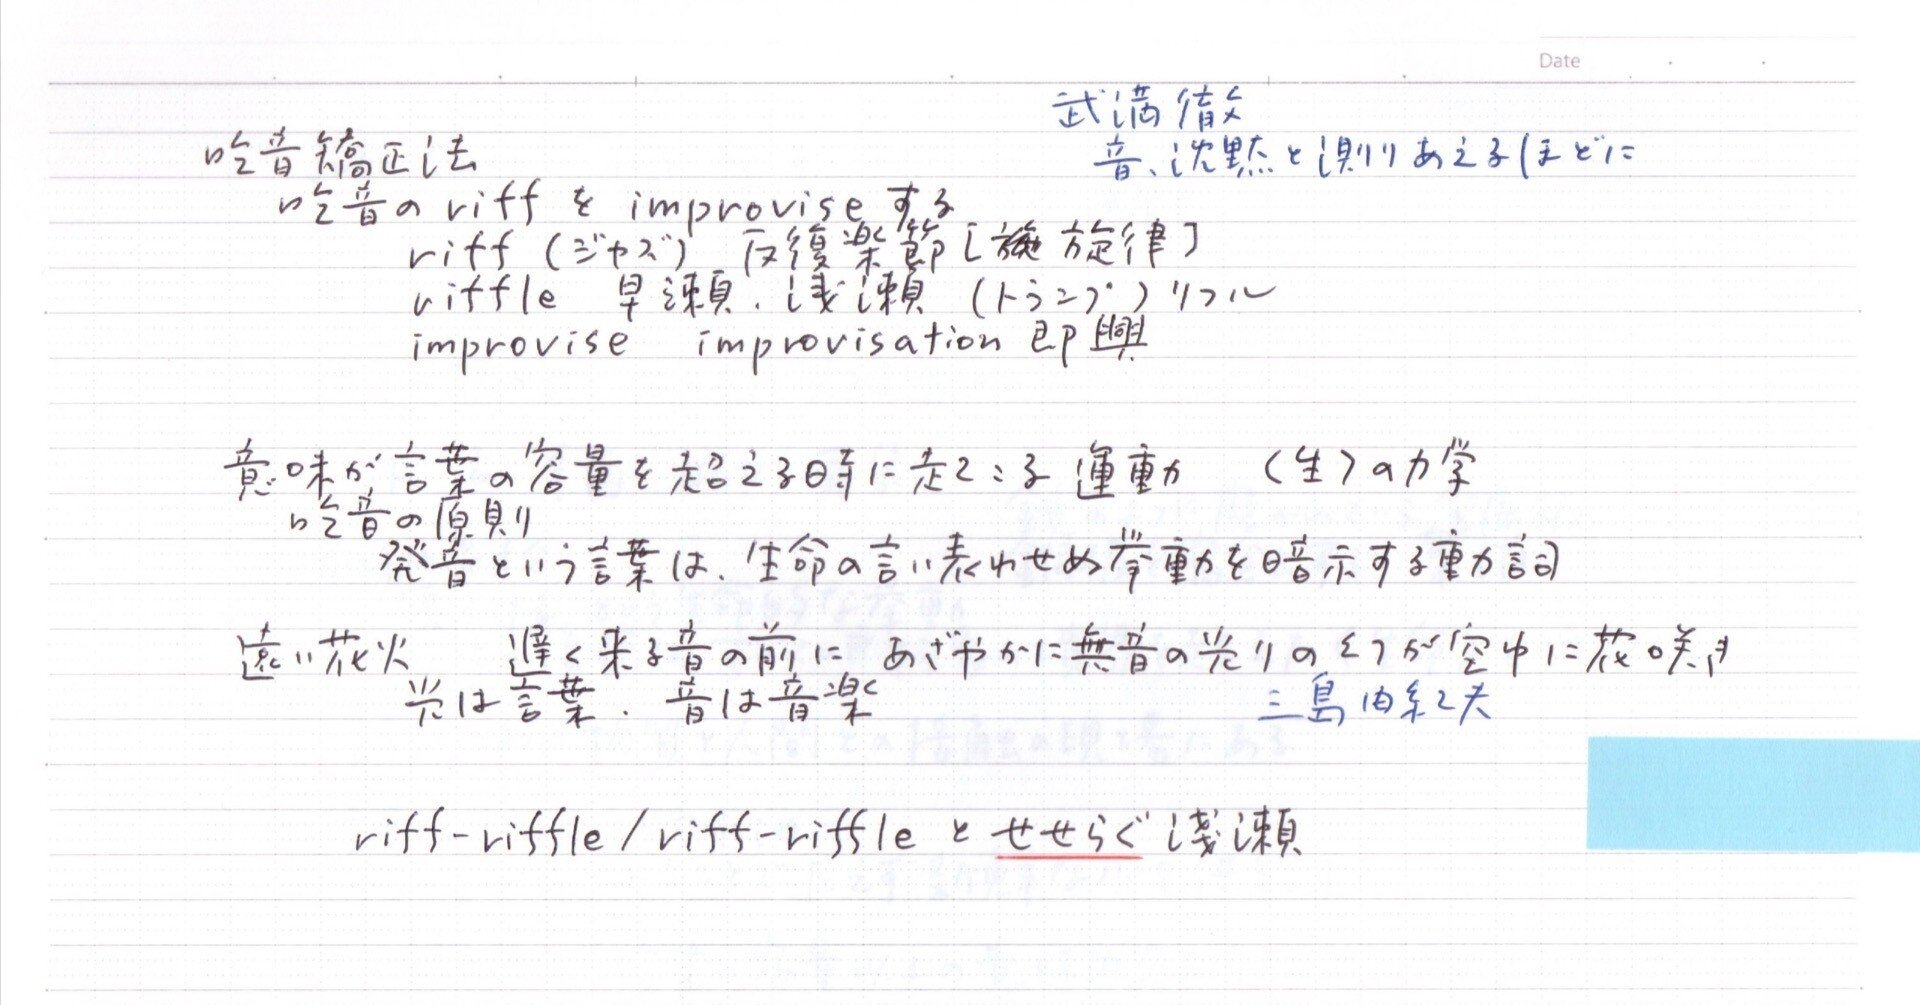 Date
武満徹
音、沈黙と測りあえるほどに
吃音矯正法
吃音の riff を improvise する
riff (ジャズ) 反復楽節 [旋律]
riffle 早瀬. 浅瀬 (トランプ) リフル
improvise improvisation 即興
意味が言葉の容量を超える時に起こる運動 〈生〉の力学
吃音の原則
発音という言葉は、生命の言い表わせぬ挙動を暗示する動詞
遠い花火 遅く来る音の前に あざやかに無音の光りの幻が空中に花咲き
光は言葉. 音は音楽
三島由紀夫
riff-riffle / riff-riffle と せせらぐ 浅瀬